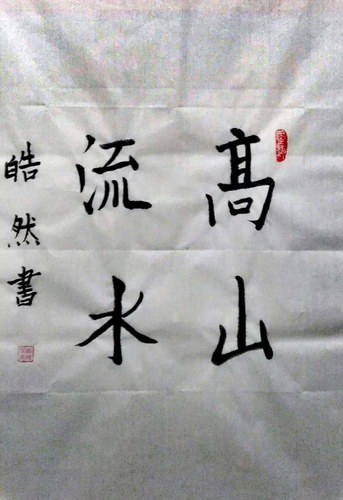 高山
流水
皓然書